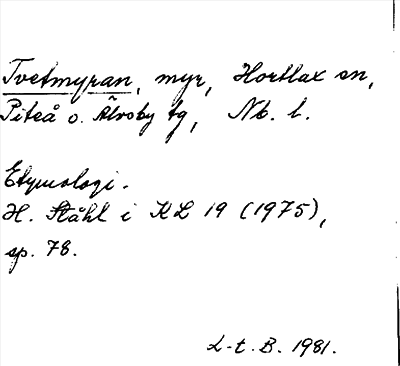 Tvetmyran, myr, Hortlax sn,
Piteå o. Älvsby tg, Nb. l.
Etymologi.
H. Ståhl i KL 19 (1975),
sp. 78.
L-t. B. 1981.